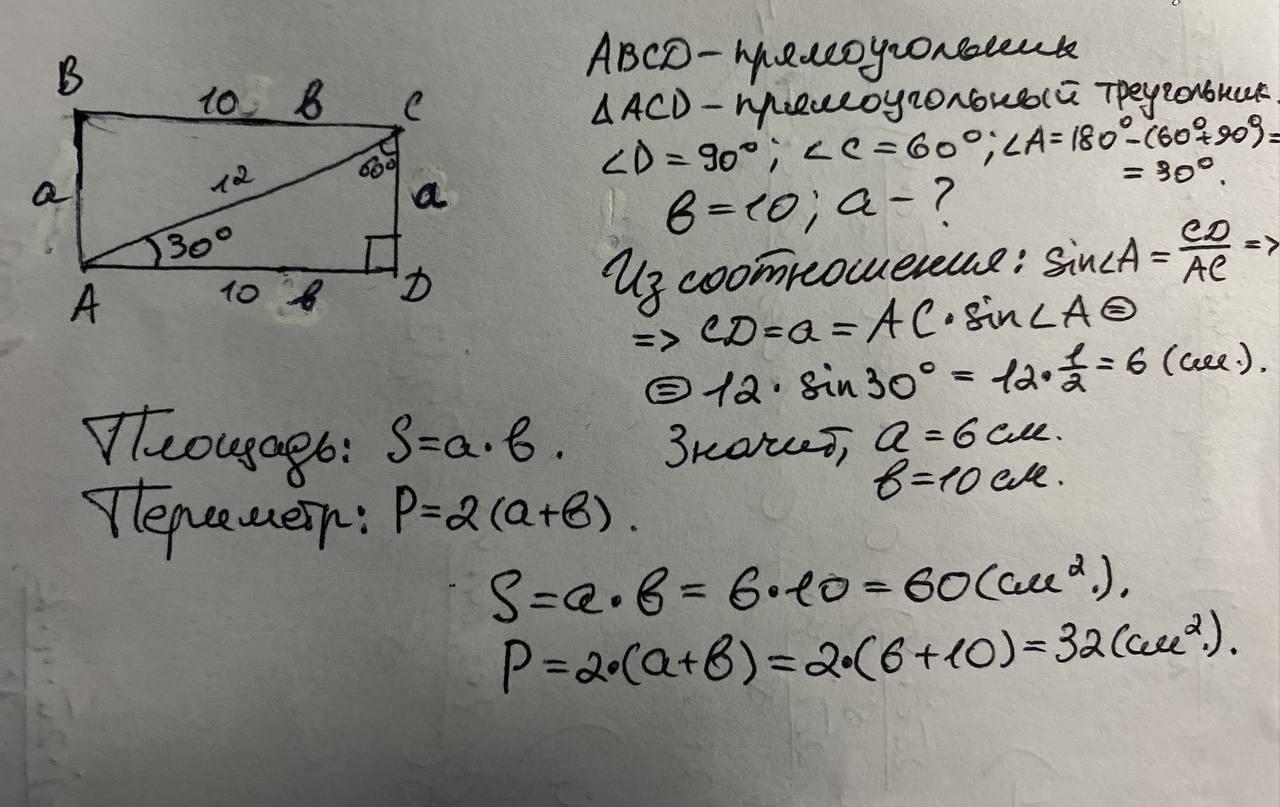 B
10 в C
a
12
60°
a
30°
A
10 в
D
ABCD – прямоугольник
ΔACD – прямоугольный треугольник.
∠D = 90°; ∠C = 60°; ∠A = 180° – (60° + 90°) =
= 30°.
в = 10; a – ?
Из соотношения: sin∠A = CD/AC =>
=> CD = a = AC · sin∠A =
= 12 · sin30° = 12 · 1/2 = 6 (см.).
Значит, a = 6 см.
в = 10 см.
Площадь: S = a · в.
Периметр: P = 2(a+в).
S = a · в = 6 · 10 = 60 (см².).
P = 2·(a+в) = 2·(6+10) = 32 (см².).